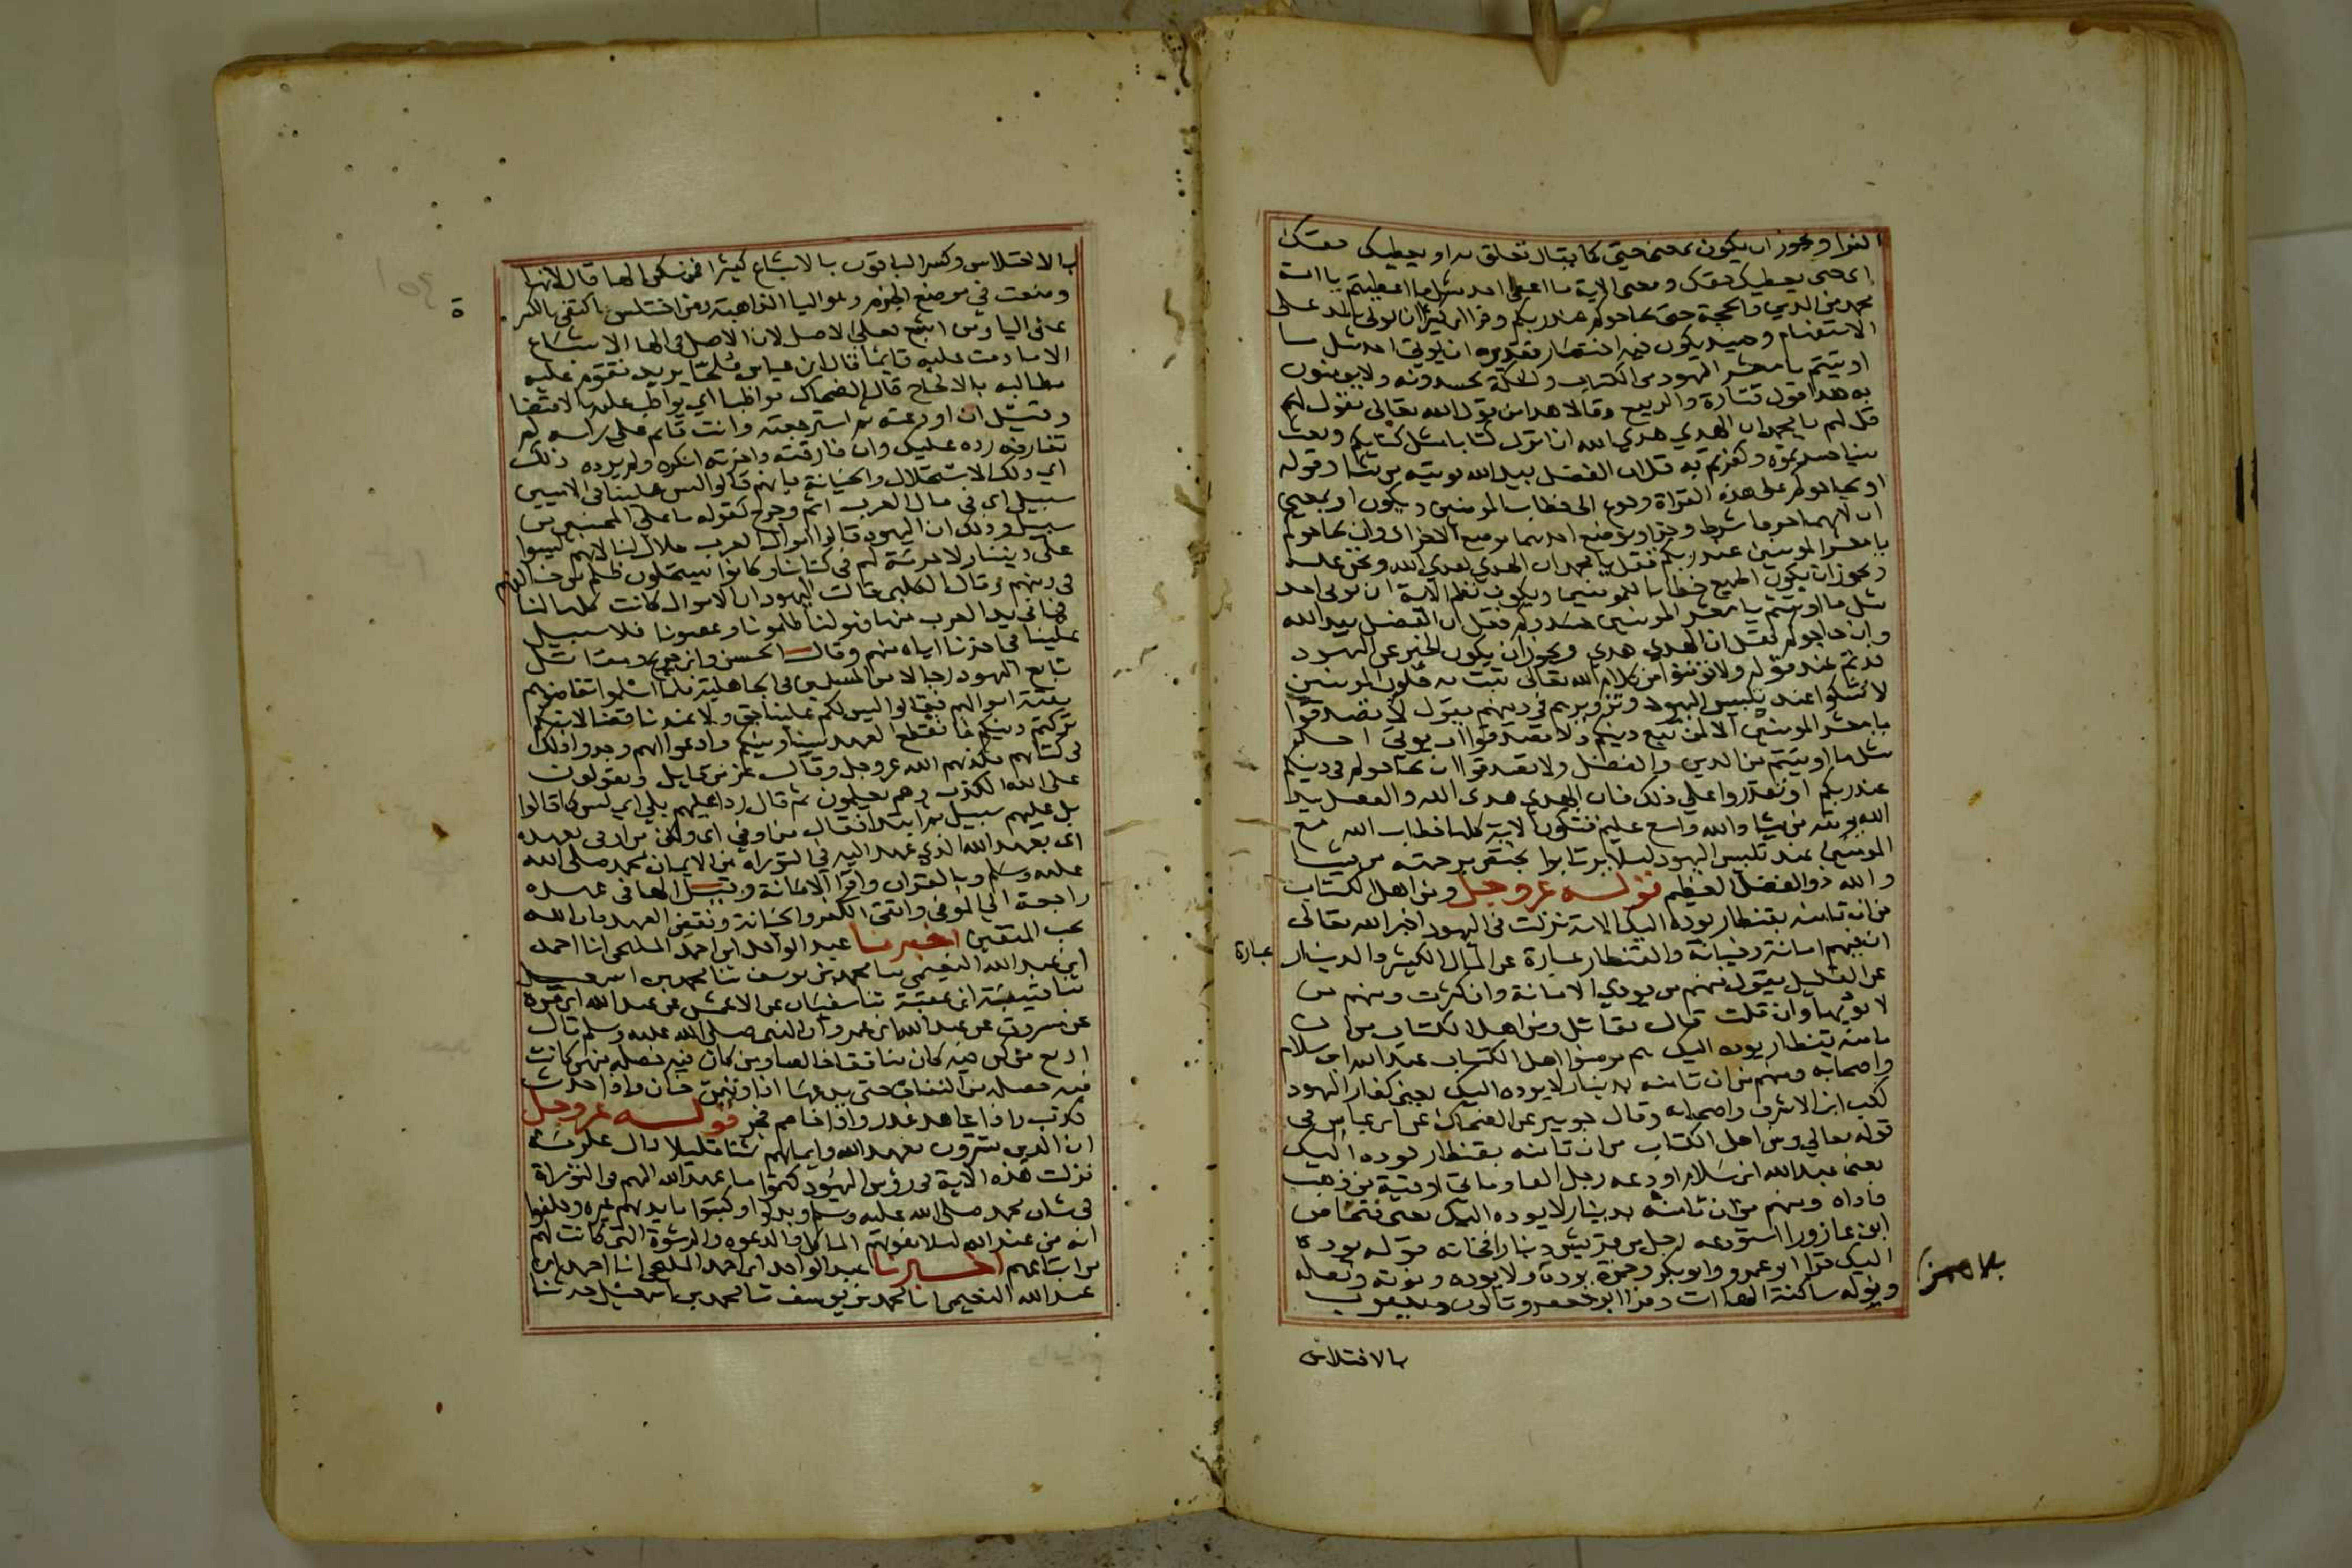 الفرا ويجوز ان يكون بمعنى حتى كما يقال تعلق به او يعطيك حقك
اي حتى يعطيك حقك ومعنى الاية ما اعطى احد مثل ما اعطيتم يا امة
محمد من الدين والحجة حتى يحاجوكم عند ربكم وقرا ابن كثير ان يوتى بالمد على
الاستفهام وحينيذ يكون فيه اختصار تقديره ان يوتى احد مثل ما
اوتيتم يا معشر اليهود من الكتاب والحكمة تحسدونه ولا يومنون
به هذا قول قتادة والربيع وقالا هذا من قول الله تعالى يقول لهم
قل لهم يا محمد ان الهدي هدي الله ان انزل كتابا مثل كتابكم وبعث
نبيا حسدتموه وكفرتم به قل ان الفضل بيد الله يوتيه من يشا وقوله
او يحاجوكم على هذه القراة رجوع الى خطاب المومنين ويكون او بمعنى
ان لانهما حرفا شرط وجزا ويوضع احدهما موضع الاخر اي وان يحاجوكم
يا معشر المومنين عند ربكم فقل يا محمد ان الهدي هدي الله ونحن عليه
ويجوز ان يكون الجميع خطابا للمومنين ويكون نظم الاية ان يوتى احد
مثل ما اوتيتم يا معشر المومنين حسدوكم فقل ان الفضل بيد الله
وان حاجوكم فقل ان الهدي هدي ويجوز ان يكون الخبر عن اليهود
قد تم عند قوله ولا تومنوا من كلام الله تعالى ثبت به قلوب المومنين
لا تشكوا عند تلبيس اليهود وتزويرهم في دينهم يقول لا تصدقوا
يا معشر المومنين الا لمن تبع دينكم ولا تصدقوا ان يوتى احد
مثل ما اوتيتم من الدين والفضل ولا تصدقوا ان يحاجوكم في دينكم
عند ربكم او يقدروا على ذلك فان الهدي هدى الله والفضل بيد
الله يوتيه من يشا والله واسع عليم فتكون الاية كلها خطاب الله مع
المومنين عند تلبيس اليهود ليلا يرتابوا يختص برحمته من يشا
والله ذو الفضل العظيم قوله عز وجل ومن اهل الكتاب
من ان تامنه بقنطار يوده اليك الاية نزلت في اليهود اخبر الله تعالى
ان فيهم امانة وخيانة والقنطار عبارة عن المال الكثير والدينار
عبارة
عن القليل يقول منهم من يودي الامانة وان كثرت ومنهم من
لا يوديها وان قلت قال مقاتل ومن اهل الكتاب من ان
تامنه بقنطار يوده اليك هم مومنوا اهل الكتاب عبد الله ابن سلام
واصحابه ومنهم من ان تامنه بدينار لا يوده اليك يعني كفار اليهود
كعب ابن الاشرف واصحابه وقال جويبر عن الضحاك عن ابن عباس في
قوله تعالى ومن اهل الكتاب من ان تامنه بقنطار يوده اليك
يعني عبد الله ابن سلام اودعه رجل الفا وماتي اوقية من ذهب
فاداه ومنهم من ان تامنه بدينار لا يوده اليك يعني فنحاص
ابن عازورا استودعه رجل من قريش دينارا فخانه قوله يوده
اليك قرا ابو عمرو وابو بكر وحمزة يوده ولا يوده ونوته ونصله
ونوله ساكنة الهاات وقرا ابو جعفر وقالون ويعقوب
بالاختلاس
بالاختلاس وكسر الباقون بالاشباع كسرا فمن سكن الها قال لانها
وضعت في موضع الجزم وهو اليا الذاهبة ومن اختلس فاكتفى بالكسر
عن اليا ومن اشبع فعلى الاصل لان الاصل في الها الاشباع
الا ما دمت عليه قايما قال ابن عباس ملحا يريد تقوم عليه
مطالبه بالالحاح قال الضحاك مواظبا اي يواظب عليه بالاقتضا
وقيل ان اودعته ثم استرجعته وانت قايم على راسه لم
تفارقه رده عليك وان فارقته واخرته انكره ولم يوده ذلك
اي ذلك الاستحلال والخيانة بانهم قالوا ليس علينا في الاميين
سبيل اي في مال العرب اثم وحرج لقوله ما على المحسنين من
سبيل وذلك ان اليهود قالوا اموال العرب حلال لنا لانهم ليسوا
على ديننا ولا حرمة لهم في كتابنا وكانوا يستحلون ظلم من خالفهم
في دينهم وقال الكلبي قالت اليهود ان الاموال كانت كلها لنا
فما في يد العرب منها فهو لنا ظلمونا وغصبونا فلا سبيل
علينا في اخذنا اياه منهم وقال الحسن وابن جريج ومقاتل
بايع اليهود رجالا من المسلمين في الجاهلية فلما اسلموا تقاضوهم
بقية اموالهم فقالوا ليس لكم علينا حق ولا عندنا قضا لانكم
تركتم دينكم فانقطع العهد بيننا وبينكم وادعوا انهم وجدوا ذلك
في كتابهم فكذبهم الله عز وجل وقال عز من قايل ويقولون
على الله الكذب وهم يعلمون ثم قال ردا عليهم بلى اي ليس كما قالوا
بل عليهم سبيل ثم ابتدا فقال من اوفى اي ولكن من اوفى بعهده
اي بعهد الله الذي عهد اليه في التوراة من الايمان بمحمد صلى الله
عليه وسلم وبالقران وادا الامانة وقيل الها في عهده
راجعة الى الموفي واتقى الكفر والخيانة ونقض العهد فان الله
يحب المتقين اخبرنا عبد الواحد ابن احمد المليحي انا احمد
ابن عبد الله النعيمي انا محمد بن يوسف ثنا محمد بن اسمعيل
ثنا قبيصة ابن عقبة ثنا سفيان عن الاعمش عن عبد الله ابن مرة
عن مسروق عن عبد الله ابن عمرو ان النبي صلى الله عليه وسلم قال
اربع من كن فيه كان منافقا خالصا ومن كان فيه خصلة منهن كانت
فيه خصلة من النفاق حتى يدعها اذا اوتمن خان واذا حدث
كذب واذا عاهد غدر واذا خاصم فجر قوله عز وجل
ان الذين يشترون بعهد الله وايمانهم ثمنا قليلا قال عكرمة
نزلت هذه الاية في روس اليهود كتموا ما عهد الله اليهم في التوراة
في شان محمد صلى الله عليه وسلم وبدلوا وكتبوا بايديهم غيره وحلفوا
انه من عند الله ليلا يفوتهم الماكل والرشوة التي كانت لهم
من اتباعهم اخبرنا عبد الواحد ابن احمد المليحي انا احمد ابن
عبد الله النعيمي انا محمد بن يوسف ثنا محمد بن اسمعيل حدثنا